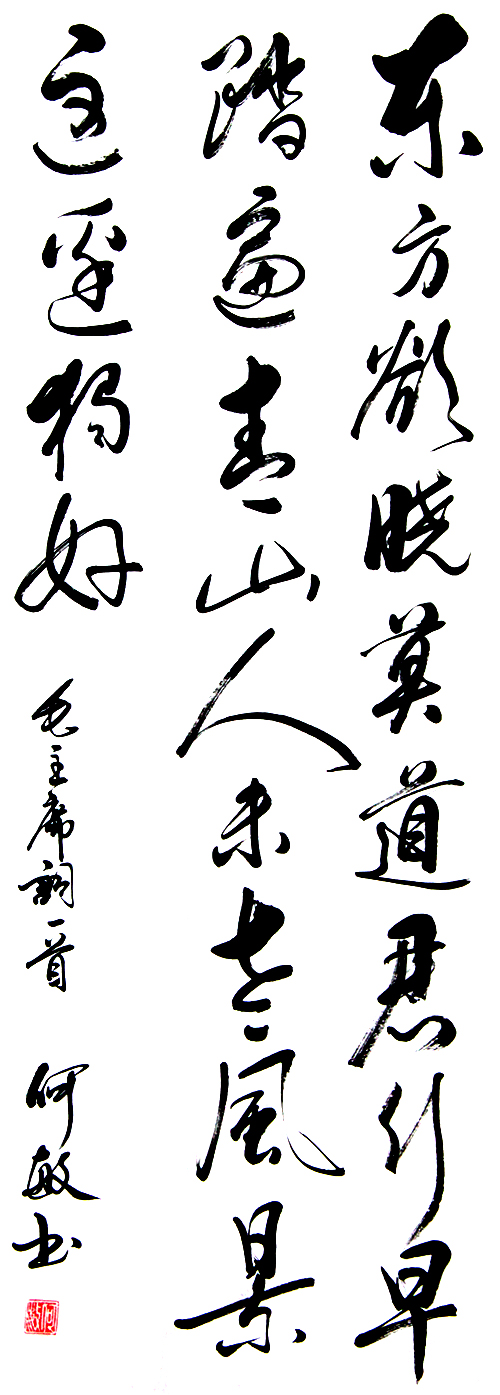 东方欲晓莫道君行早
踏遍青山人未老風景
这邊独好
毛主席詞一首
何敏书
何敏